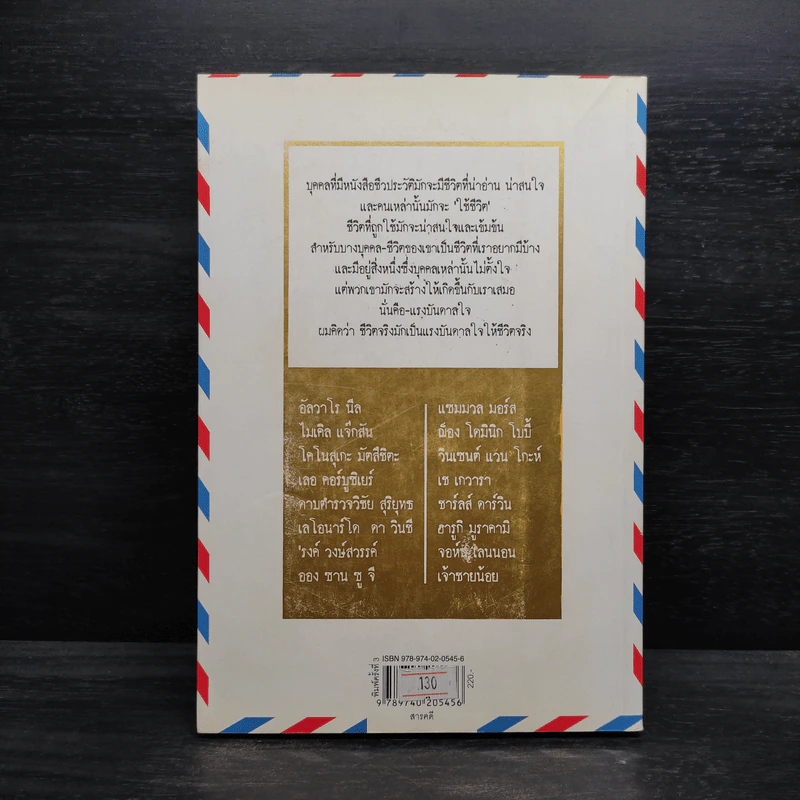 บุคคลที่มีหนังสือชีวประวัติมักจะมีชีวิตที่น่าอ่าน น่าสนใจ
และคนเหล่านั้นมักจะ 'ใช้ชีวิต'
ชีวิตที่ถูกใช้มักจะน่าสนใจและเข้มข้น
สำหรับบางบุคคล-ชีวิตของเขาเป็นชีวิตที่เราอยากมีบ้าง
และมีอยู่สิ่งหนึ่งซึ่งบุคคลเหล่านั้นไม่ตั้งใจ
แต่พวกเขามักจะสร้างให้เกิดขึ้นกับเราเสมอ
นั่นคือ-แรงบันดาลใจ
ผมคิดว่า ชีวิตจริงมักเป็นแรงบันดาลใจให้ชีวิตจริง
อัลวาโร นีล
ไมเคิล แจ๊กสัน
โคโนสุเกะ มัตสึชิตะ
เลอ คอร์บูซิเยร์
ดาบตำรวจวิชัย สุริยุทธ
เลโอนาร์โด ดา วินชี
'รงค์ วงษ์สวรรค์
ออง ซาน ซู จี
แซมมวล มอร์ส
ฌ็อง โดมินิก โบบี้
วินเซนต์ แวน โกะห์
เช เกวารา
ชาร์ลส์ ดาร์วิน
ฮารูกิ มูราคามิ
จอห์น เลนนอน
เจ้าชายน้อย
พิมพ์ครั้งที่ 3
ISBN 978-974-02-0545-6
130
220.-
9 789740 205456
สารคดี